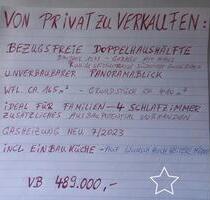 VON PRIVAT ZU VERKAUFEN:
BEZUGSFREIE DOPPELHAUSHÄLFTE
BAUJAHR GARAGE
UNVERBAUBARER PANORAMABLICK
WFL. CA. 165m² - GRUNDSTÜCK CA.
IDEAL FÜR FAMILIEN - 4 SCHLAFZIMMER
ZUSÄTZLICHES AUSBAUPOTENTIAL VORHANDEN
GASHEIZUNG NEU 7/2023
INCL EINBAUKÜCHE - AUF WUNSCH AUCH WEITERE MÖBEL
VB 489.000,-